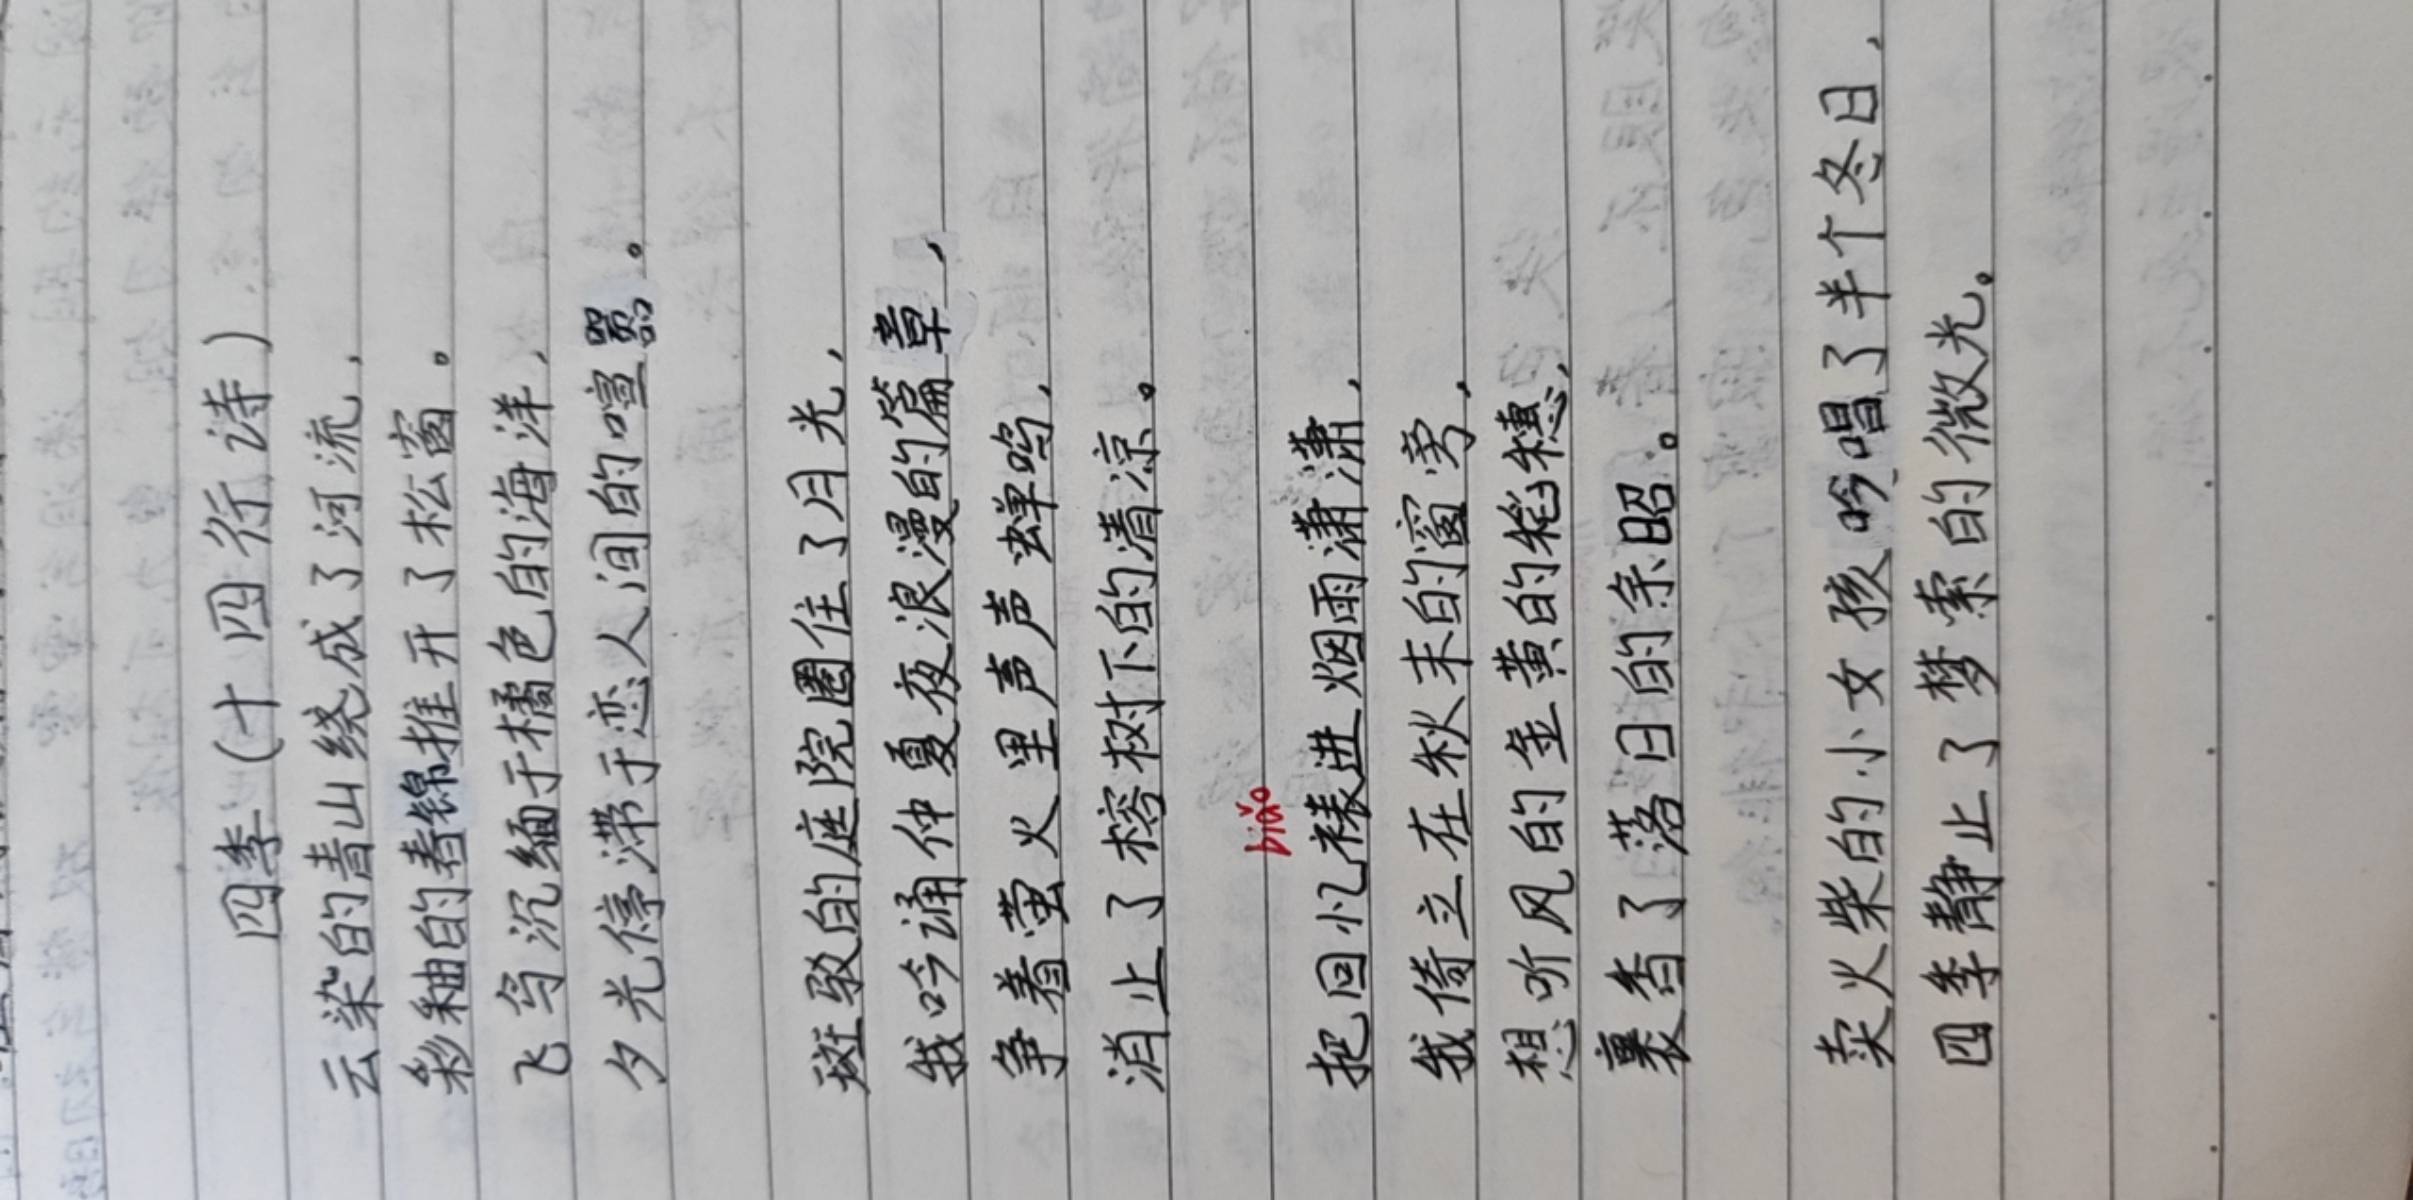 四季（十四行诗）
云染的青山绕成了河流，
彩釉的春锦推开了松窗。
飞鸟沉缅于橘色的海洋，
夕光停滞于恋人间的喧嚣。
斑驳的庭院圈住了月光，
我吟诵仲夏夜浪漫的篇章，
争着萤火里声声蝉鸣，
消止了榕树下的清凉。
biǎo
把回忆裱进烟雨潇潇，
我倚立在秋末的窗旁，
想听风的金黄的稻穗，
裹香了落日的余昭。
卖火柴的小女孩吟唱了半个冬日，
四季静止了梦索的微光。